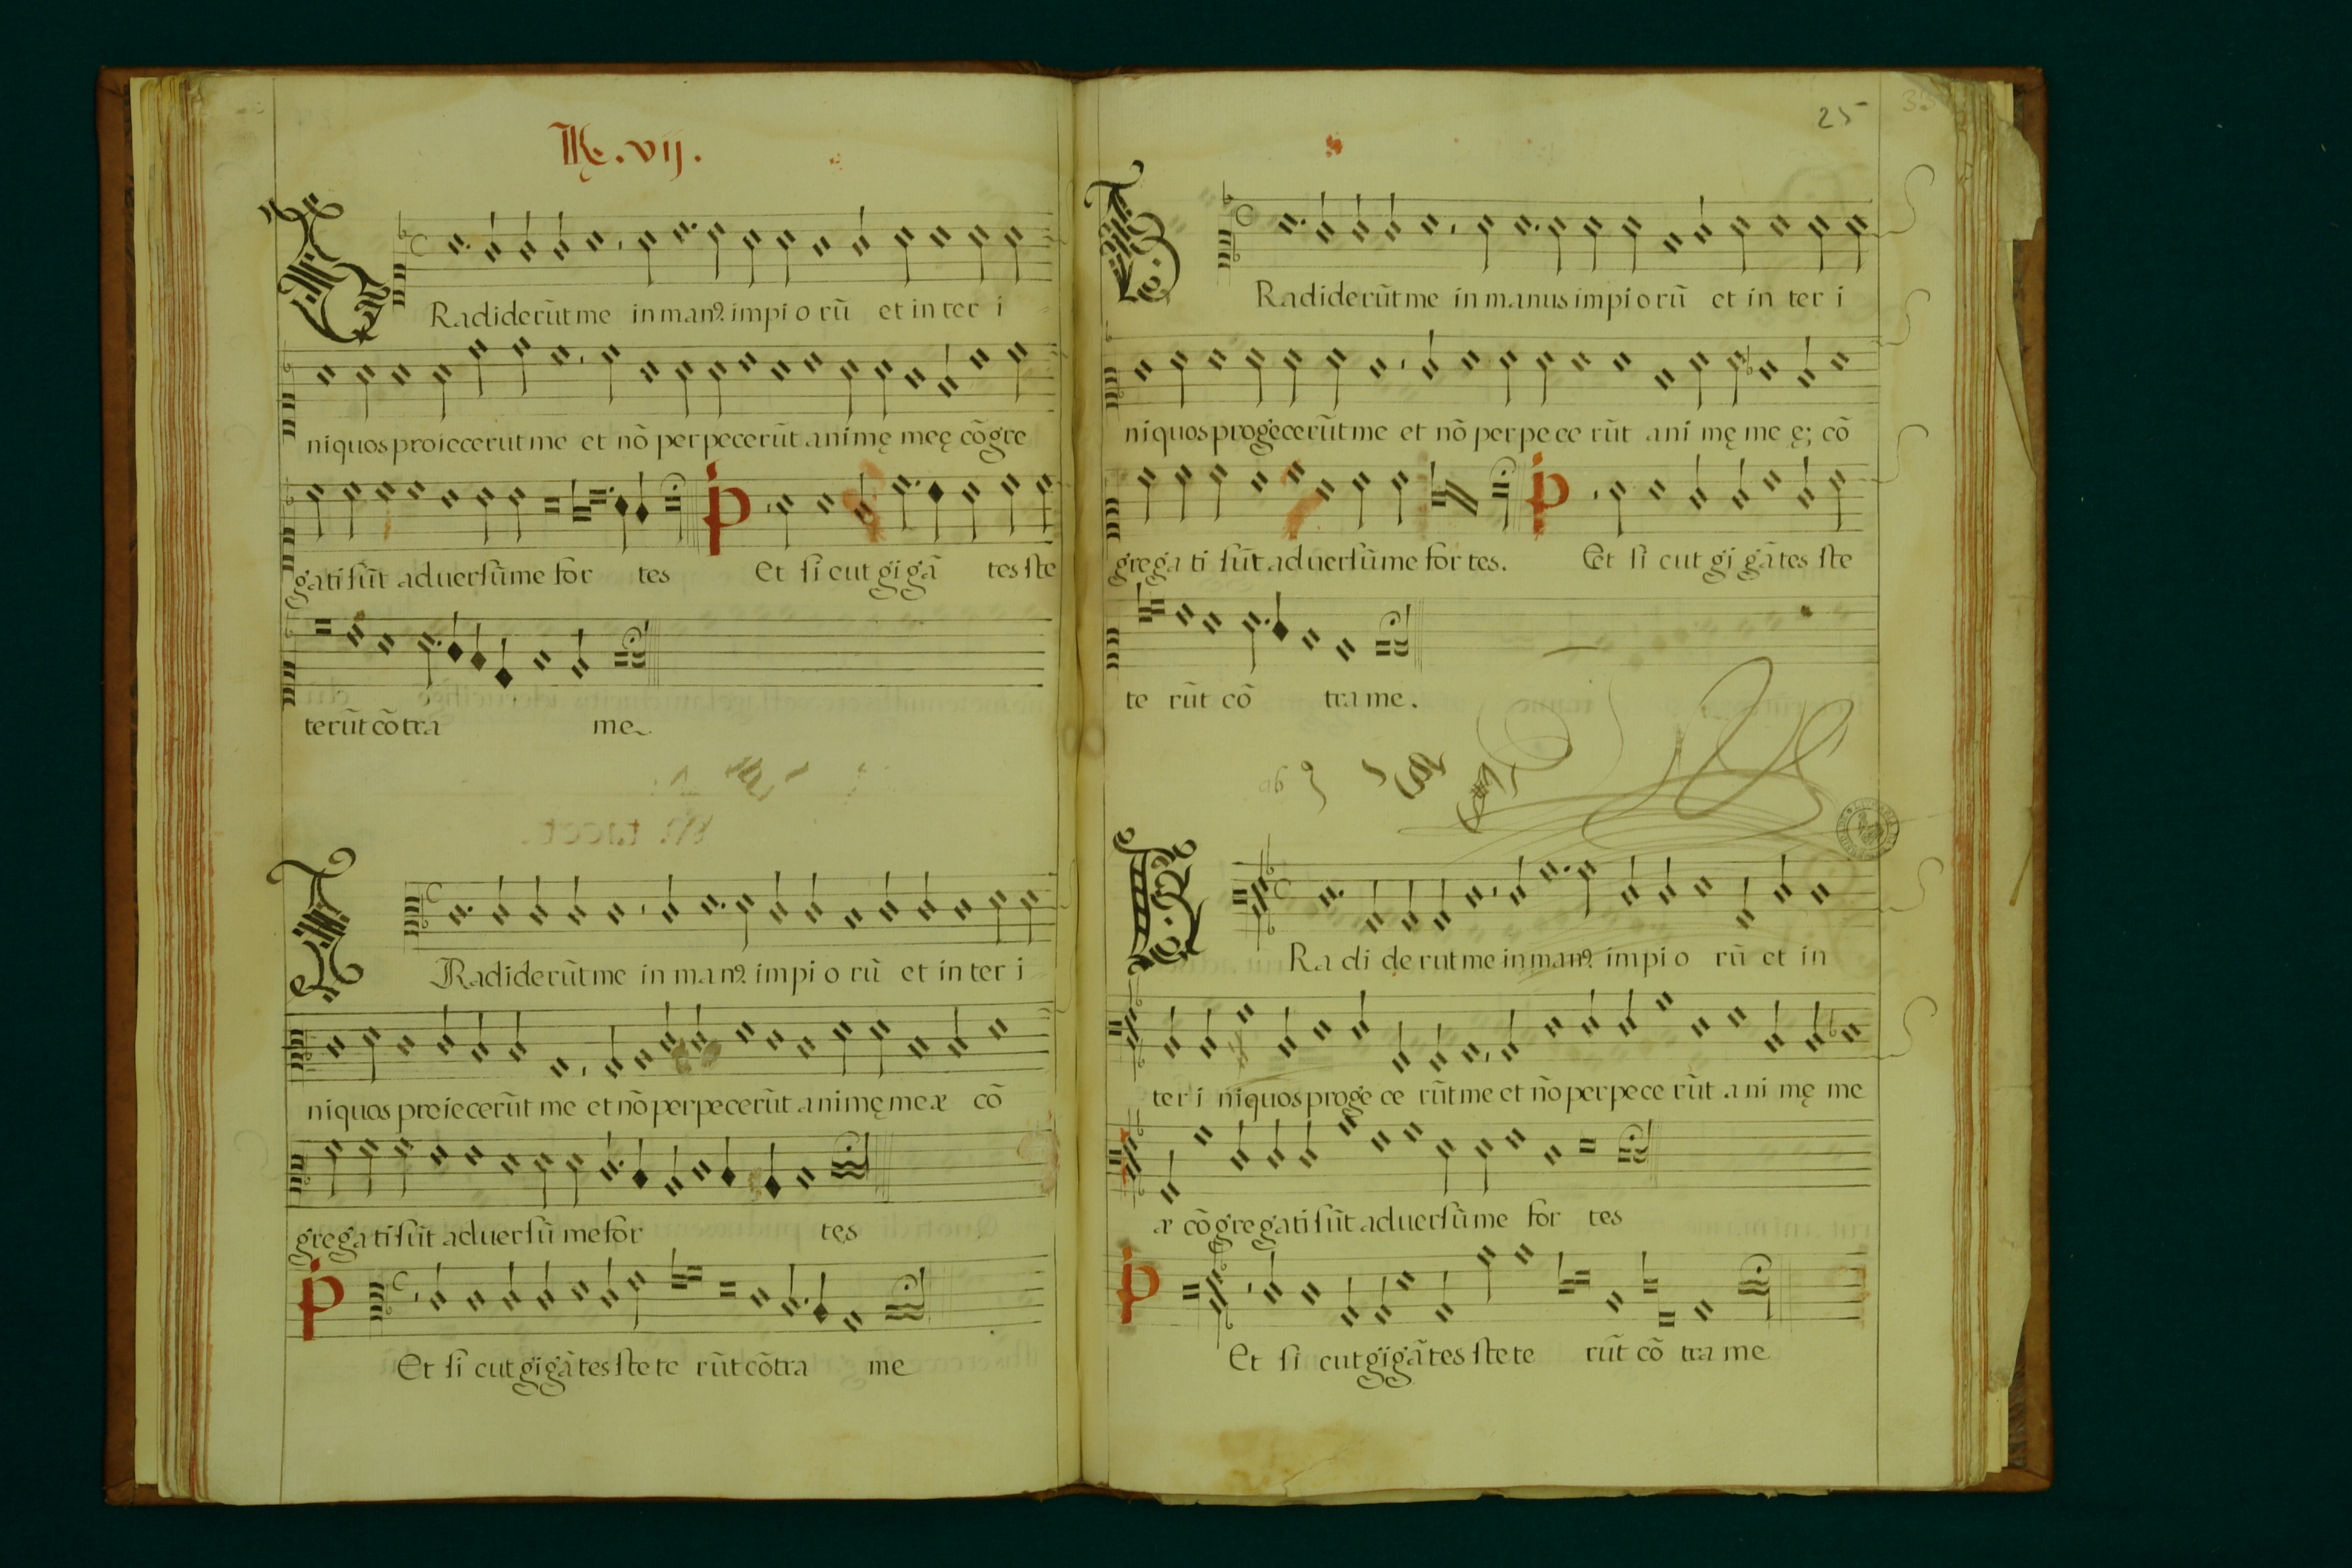 R. vij.
Radiderũt me in manꝰ. impi o rũ et in ter i
niquos proiecerut me et nõ perpecerũt animę meę cõgre
gati sũt aduersũ me for tes P Et si cut gi gã tes ste
terũt cõ tra me
T Radiderũt me in manꝰ. impi o rũ et in ter i
niquos proiecerũt me et nõ perpecerũt animę meæ cõ
gregati sũt aduersũ me for tes
P Et si cut gigãtes ste te rũt cõtra me
25
Radiderũt me in manus impiorũ et in ter i
niquos progecerũt me et nõ perpece rũt ani mę me ę; cõ
grega ti sũt aduersũ me for tes. P Et si cut gi gãtes ste
te rũt cõ tra me.
Ra di de rut me in manꝰ. impi o rũ et in
ter i niquos proge ce rũt me et ño perpece rũt ani mę me
æ cõgregati sũt aduersũ me for tes
P Et si cut gigãtes ste te rũt cõ tra me